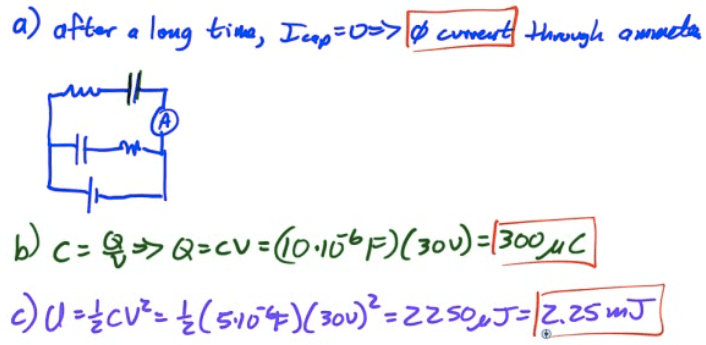 a) after a long time, I_cap = 0 => ϕ current through ammete
A
b) C = Q/V => Q = CV = (10·10⁻⁶F)(30V) = 300 μC
c) U = ½CV² = ½(5·10⁻⁶F)(30V)² = 2250 μJ = 2.25 mJ